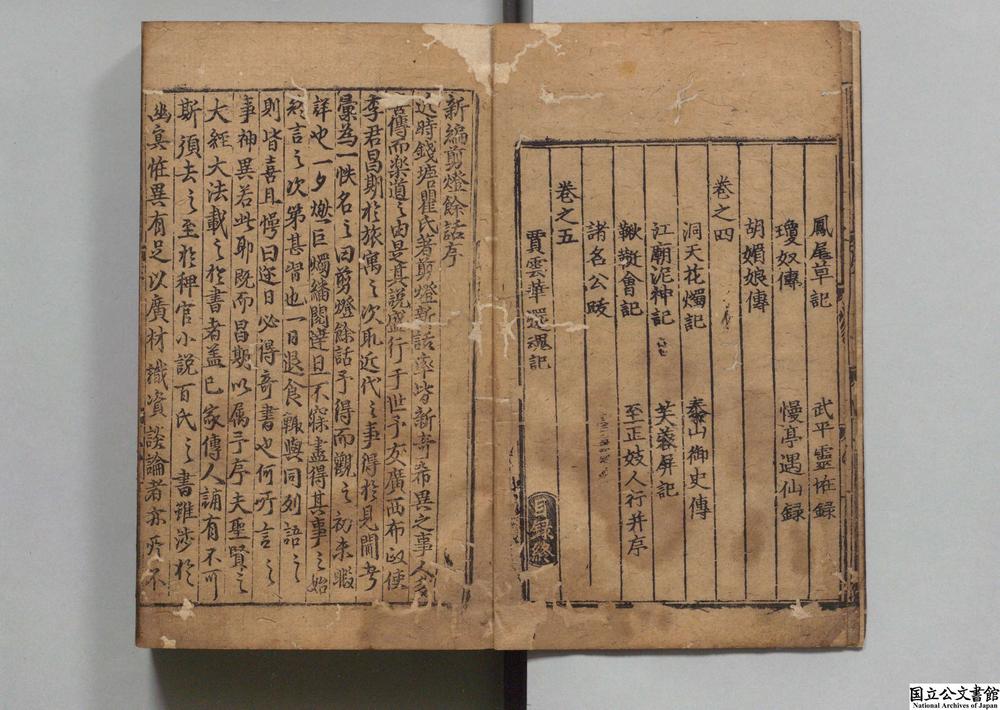 鳳尾草記　武平靈怪録
瓊奴傳　慢亭遇仙録
胡媚娘傳
卷之四
洞天花燭記　泰山御史傳
江廟泥神記　芙蓉屏記
鞦韆會記　至正妓人行并序
諸名公跋
卷之五
賈雲華還魂記
目録終
新編剪燈餘話序
近時錢塘瞿氏著剪燈新話率皆新竒希異之事人多
傳而楽道之由是其説盛行于世予友廣西布政使
李君昌期於旅寓之次取近代之事得於見聞者
彚為一帙名之曰剪燈餘話予得而觀之初未暇
詳也一夕燃巨燭繙閱達旦不寐盡得其事之始
末言之次第甚習也一日退食輙與同列語之
則皆喜且愕曰邇日必得竒書也何所言之
事神異若此耶既而昌期以属予序夫聖賢之
大經大法載之於書者盖已家傳人誦有不可
斯須去之至於稗官小説百氏之書雖渉於
幽冥恠異有足以廣材識資談論者亦所不
国立公文書館
National Archives of Japan